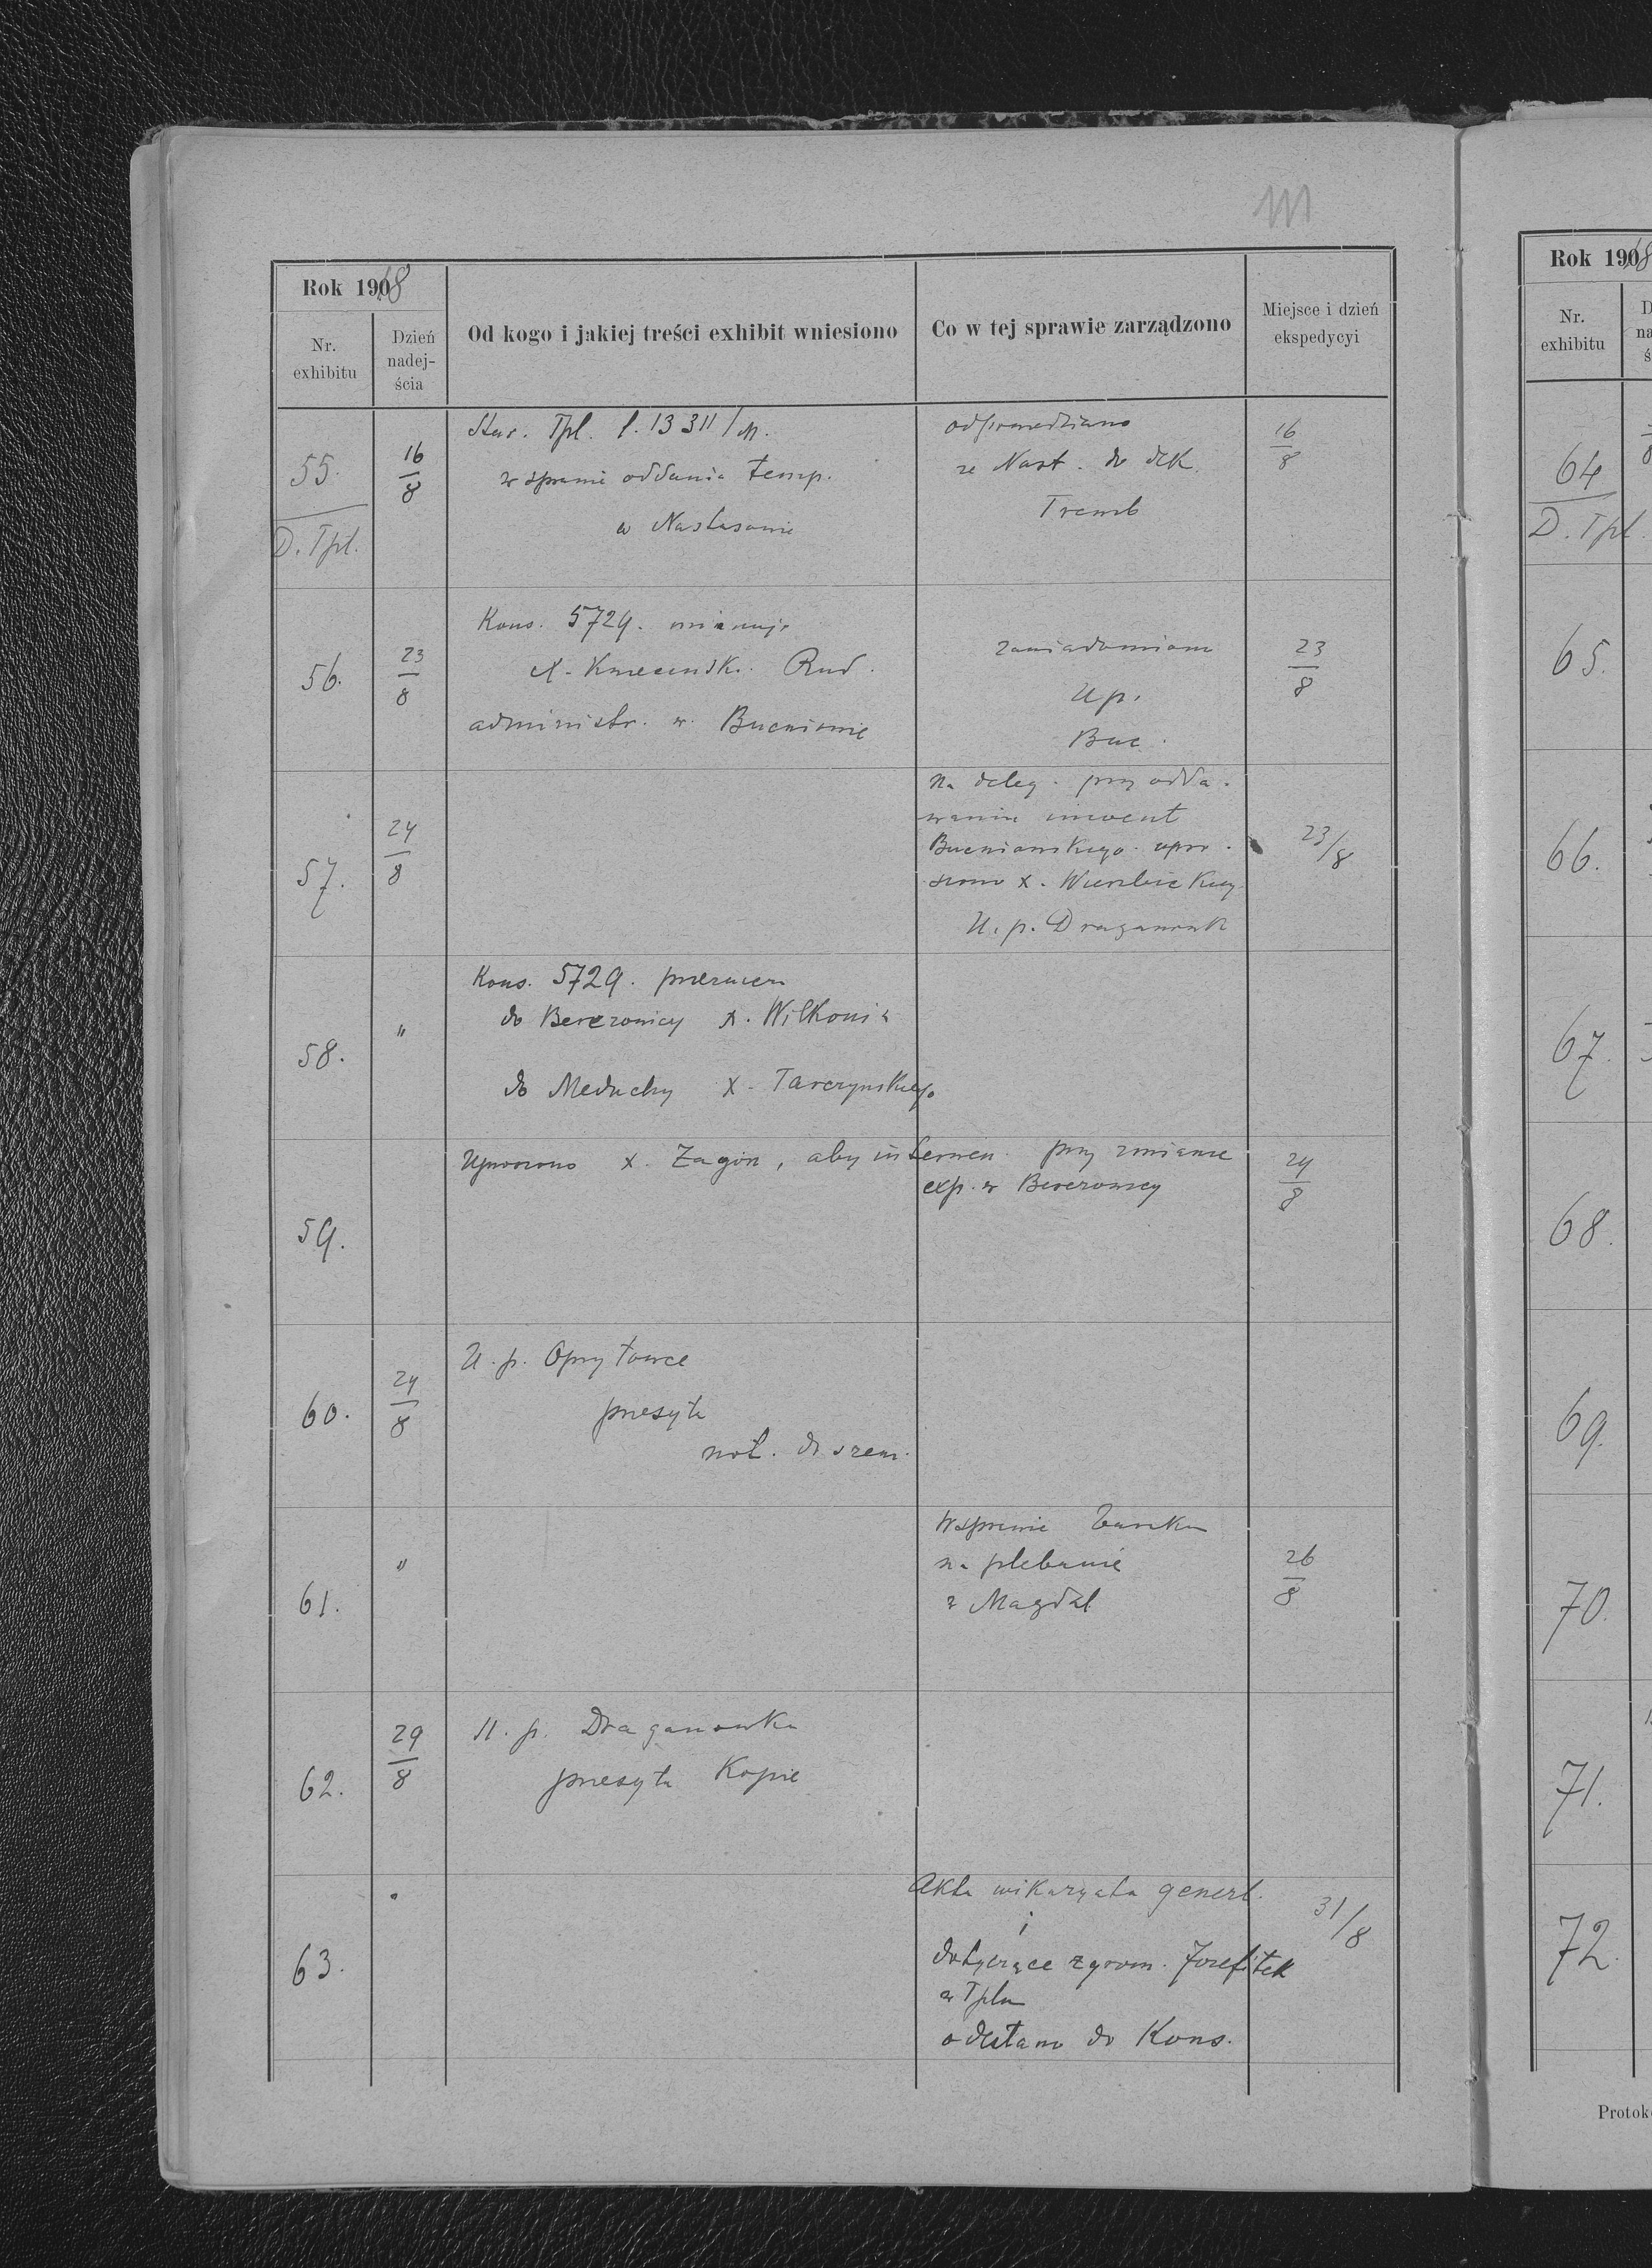 111
Rok 1918
Nr. exhibitu
Dzień nadej-ścia
Od kogo i jakiej treści exhibit wniesiono
Co w tej sprawie zarządzono
Miejsce i dzień ekspedycyi
55.
D. Tpl.
16/8
Star. Tpl. l. 13311/M.
w sprawie oddania temp.
w Nastasowie
odpowiedziano
ze Nast. do dek.
Tremb
16/8
56.
23/8
Kons. 5729. mianuje
X. Rud.
administr. w. Bucniowie
zawiadomiono
U. p.
Buc.
23/8
57.
24/8
Na deleg. przy odda-
waniu inwent
Bucniowskiego upro-
szono X. Wierzbickiego
U. p. Draganówk
23/8
58.
"
Kons. 5729. przeznacza
do Berezowicy X. Wilkonia
do Meduchy X. Tarczyńskiego
59.
Uproszono X. Zagór, aby interwen. przy zmianie
exp. w Berezowicy
24/8
60.
24/8
U. p. Opryłowce
przesyła
not. do szem.
61.
"
W sprawie
na plebanię
z Magdal
26/8
62.
29/8
U. p. Draganówka
przesyła Kopie
63.
"
Akta wikaryatu generl.
i
dotyczące zgrom. Józefitek
w Tplu
odesłano do Kons.
31/8
Rok 1918
Nr. exhibitu
64
D. Tpl.
65.
66.
67.
68.
69.
70.
71.
72.